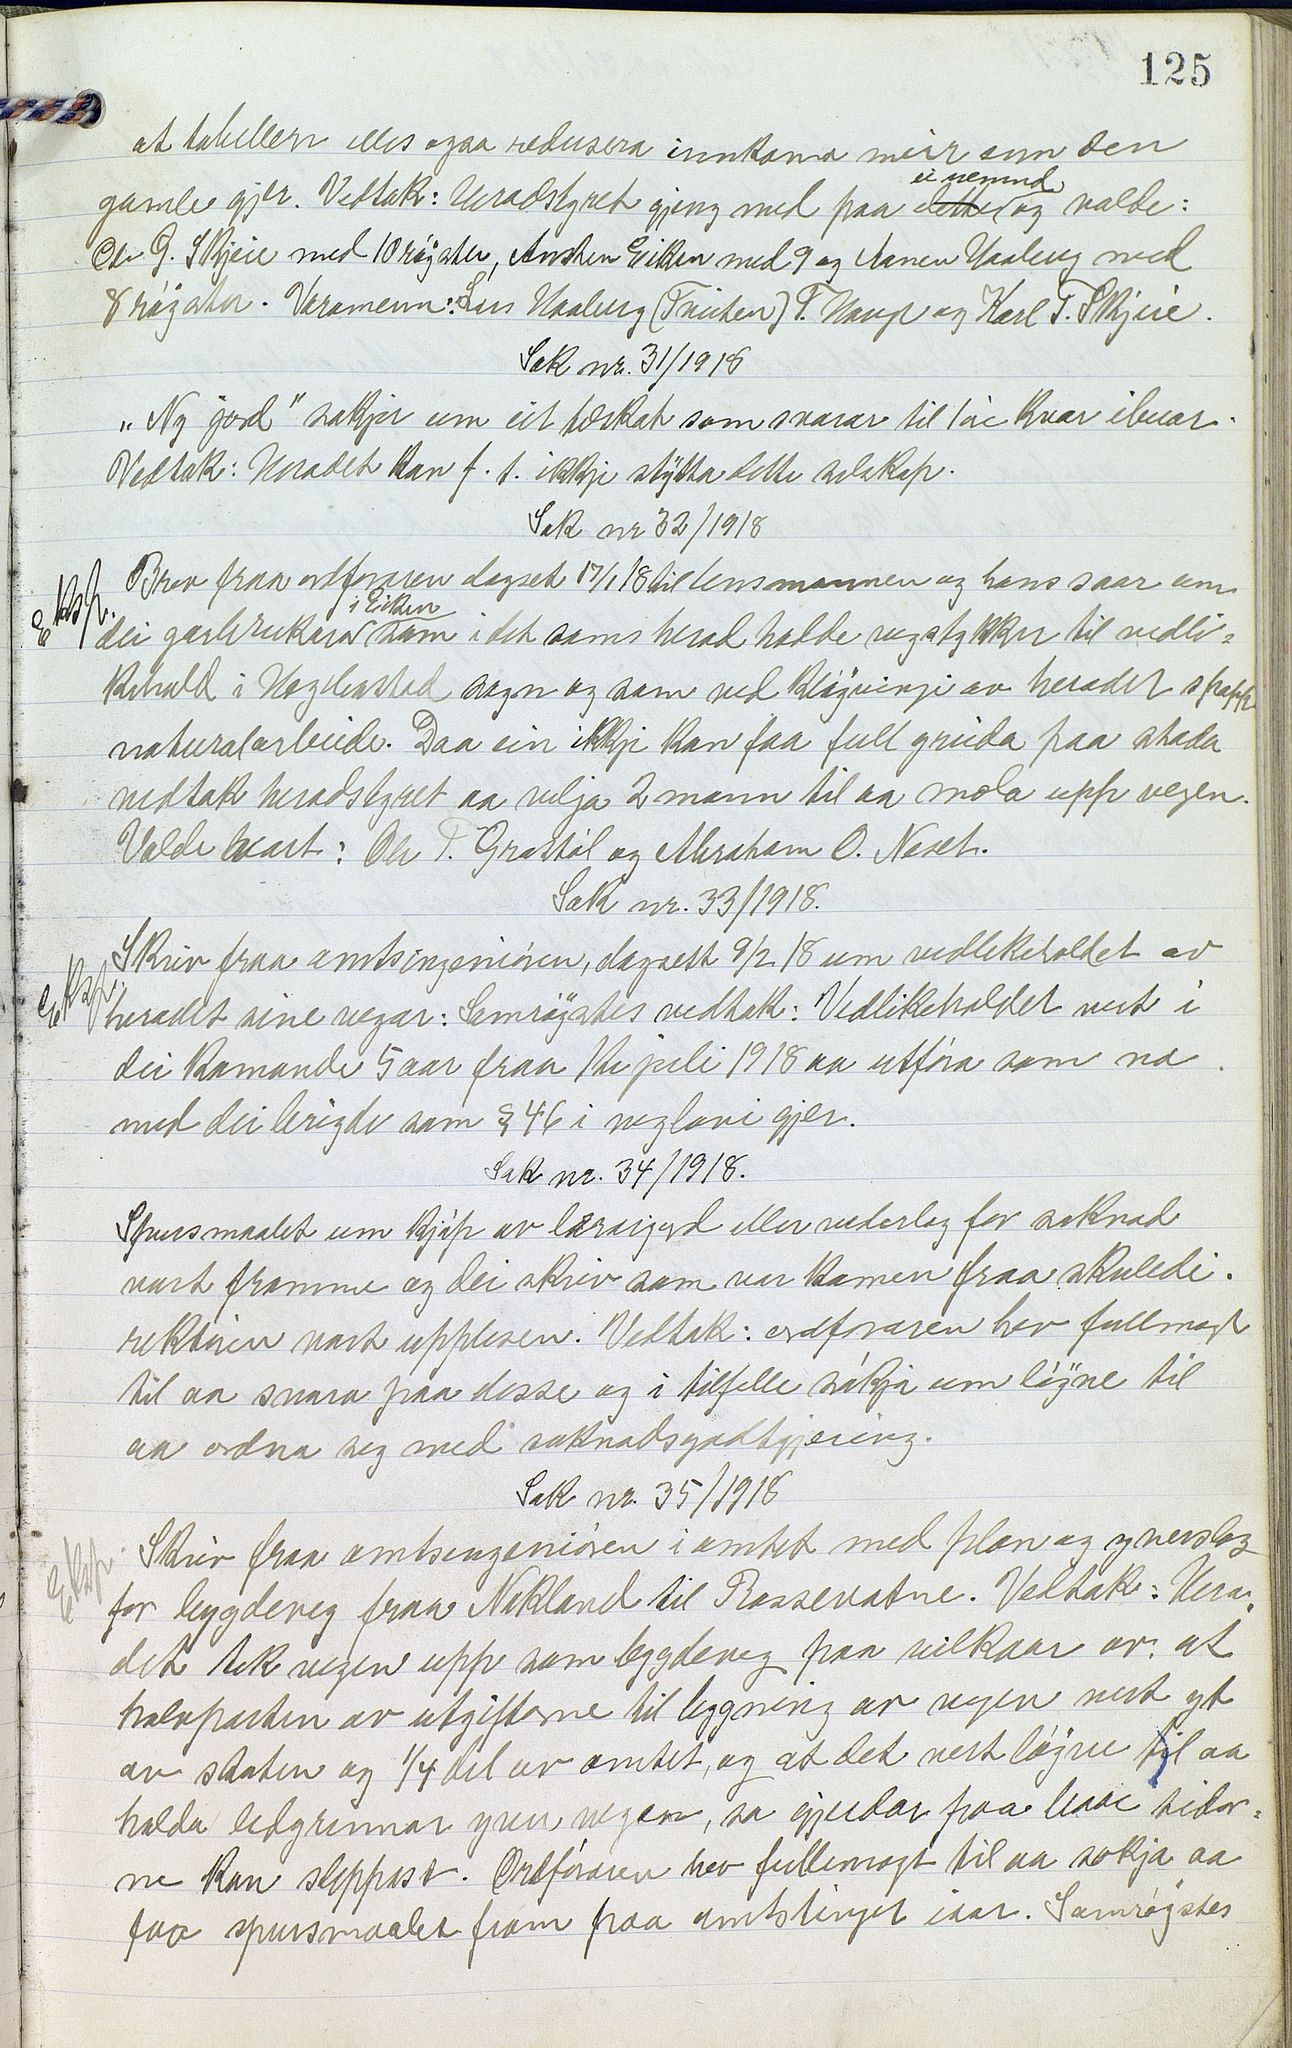 125
at tabellen elles ogsaa redusera innkoma meir enn den
gamle gjer. Vedtak: Heradstyret gjeng med paa ei nemnd og valde:
Ole G. Skjeie med 10 röyster, Ansten Eiken med 9 og Aanen Haaberg med
8 röyster. Varamenn: Lars Haaberg (Tveiten) T. Haup og Karl T. Skjeie.
Sak nr. 31/1918
"Ny jord" søkjer um eit tilskot som svarar til 1 öre kvar ibuar.
Vedtak: Heradet kan f. t. ikkje stytta dette selskap.
Sak nr 32/1918
Eksp.
Brev fraa ordforaren dagset 17/1 18 til lensmannen og hans svar um
dei gardbrukarar i Eiken som i det sams herad hadde vegstykker til vedli-
kehald i Hægebostad sogn og som ved kløyvingi av heradet slapp
naturalarbeide. Daa ein ikkje kan faa full greida paa stoda
vedtok heradstyret aa velja 2 mann til aa mæla upp vegen.
Valde vart: Ole T. Grastöl og Abraham O. Neset.
Sak nr. 33/1918.
Eksp.
Skriv fraa amtsingeniören, dagsett 9/2 18 um vedlikeholdet av
heradet sine vegar: Samröystes vedtak: Vedlikehaldet vert i
dei komande 5 aar fraa 1ste juli 1918 aa utföra som no
med dei brigde som § 46 i veglovi gjer.
Sak nr. 34/1918.
Spursmaalet um kjöp av lærarjord eller vederlag for saknad
vart framme og dei skriv som var komen fraa skuledi-
rektören vart upplesen. Vedtak: ordforaren hev fullmagt
til aa svara paa desse og i tilfelle sökja um löyve til
aa ordna seg med saknadsgodtgjering.
Sak nr. 35/1918
Eksp.
Skriv fraa amtsingeniören i amtet med plan og yverslag
for bygdeveg fraa Nokland til Rossevatne. Vedtak: Hera-
det tek vegen upp som bygdeveg paa vilkaar av: at
halvparten av utgifterne til bygning av vegen vert yt
av staten og 1/4 del av amtet, og at det vert löyve til aa
halda ledgrinnar yver vegen, so gjerdar paa baae sidor-
ne kan sleppast. Ordföraren hev fullmagt til aa sökja aa
faa spursmaalet fram fraa amtstinget i aar. Samröystes